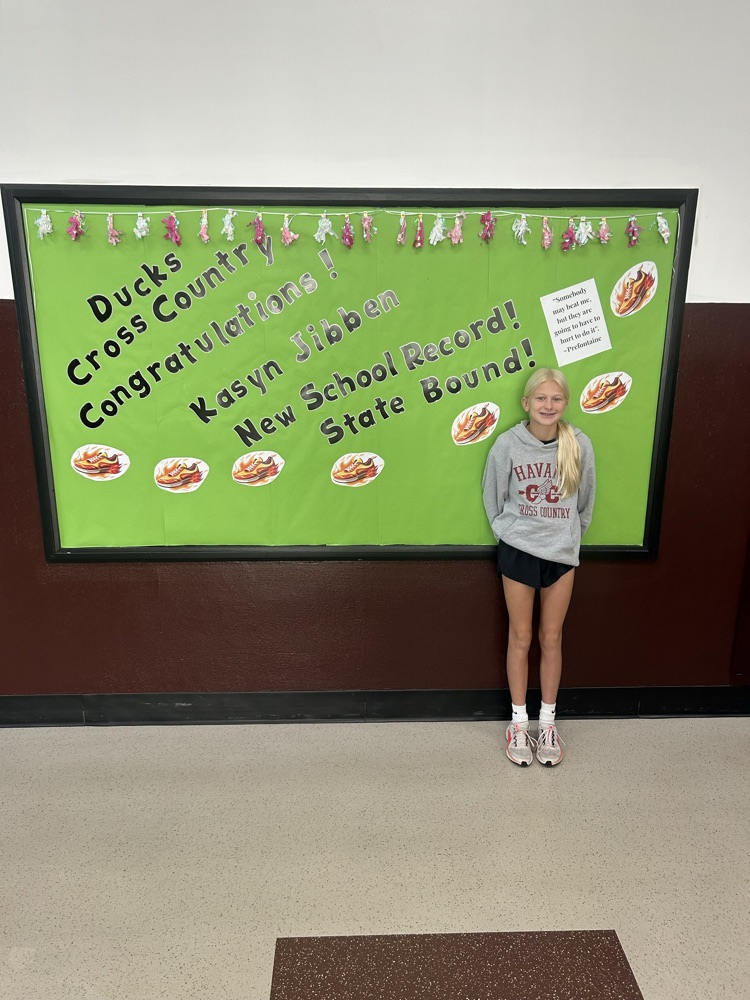 Ducks
Cross Country
Congratulations !
Kasyn Jibben
New School Record!
State Bound!
"Somebody
may beat me,
but they are
going to have to
hurt to do it".
~Prefontaine
HAVANA
CC
CROSS COUNTRY